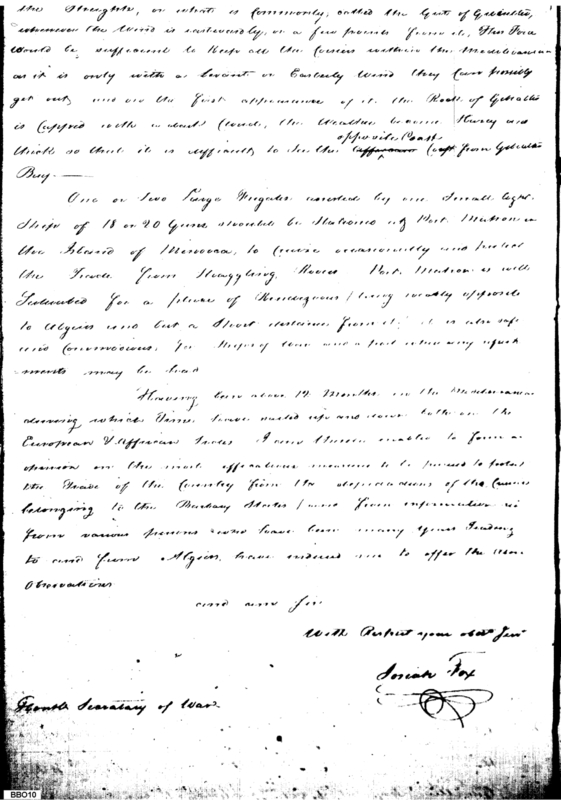 the Streights, or what is Commonly, called the Gut of Gibralter,
whenever the Wind is easterly, or a few points from it, This Force
would be sufficient to keep all the Corsairs within the Mediterranean
as it is only with a Levant or Easterly Wind they can possibly
get out, and on the first appearance of it the Rock of Gibralter
is Capped with a Cloud, the Weather become Hazey and
thick so that it is difficult to see the opposite Coast from Gibralter
Bay.
One or two Large Frigates assisted by one Small light
Ship of 18 or 20 Guns should be Stationed at Port Mahon in
the Island of Minorca, to Cruise occasionally and protect
the Trade from Straggling Port Mahon is well
Situated for a place of Rendezvous being nearly opposite
to Algiers and but a Short distance from it; it is also safe
and Commodious, for Ships of War and a port where any refresh
ments may be had
Having been about 12 Months in the Mediterranean
during which Time have sailed up and down both on the
European & Affrican I am enabled to form an
opinion on the most efficatious measures to be pursued to protect
the Trade of the Country from the depredations of the Corsairs
belonging to the Barbary States and from information
from various persons who have been many Years Trading
to and from Algiers, have induced me to offer the
Observations
and am Sir
With Perfect your obedt Servt
Josiah Fox
Honble Secretary of War
BBO10